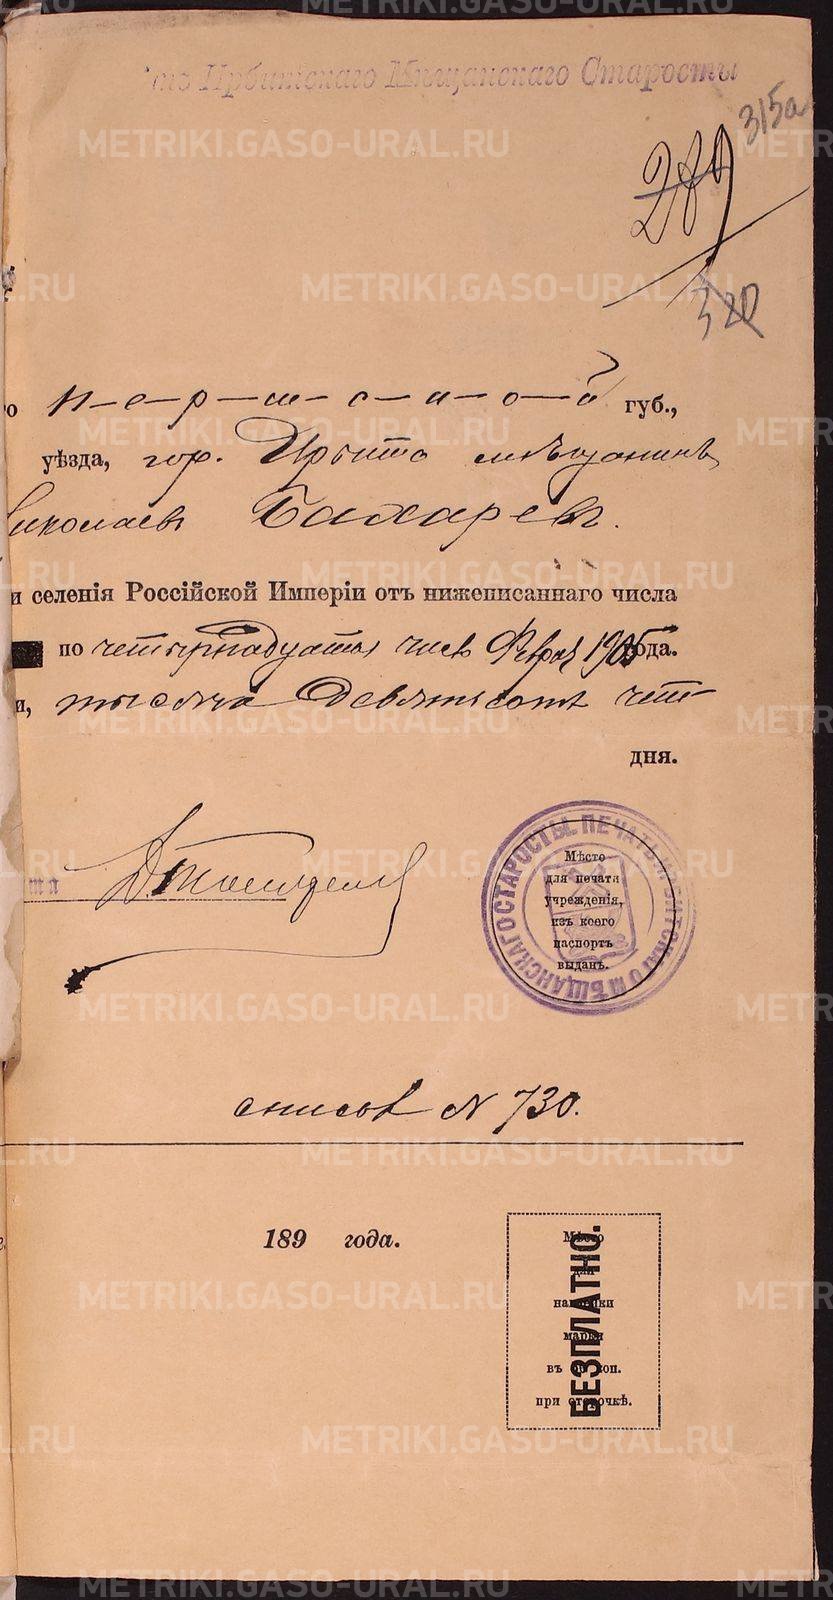 Ирбитскаго Мѣщанскаго Старосты
315а
289
320
П-е-р-м-с-к-о-й губ.,
уѣзда, гор. Ирбита мѣщанинъ
Николаевъ Бахаревъ.
и селенія Россійской Имперіи отъ нижеписаннаго числа
по четырнадцатое число Февраля 1905 года.
и, тысяча девятьсотъ чет-
дня.
та
ПЕЧАТЬ ИРБИТСКАГО МѢЩАНСКАГО СТАРОСТЫ
Мѣсто
для печати
учрежденія,
изъ коего
паспортъ
выданъ.
списокъ N 730.
189 года.
БЕЗПЛАТНО.
Мѣсто
для
наклейки
марки
въ коп.
при отсрочкѣ.
METRIKI.GASO-URAL.RU